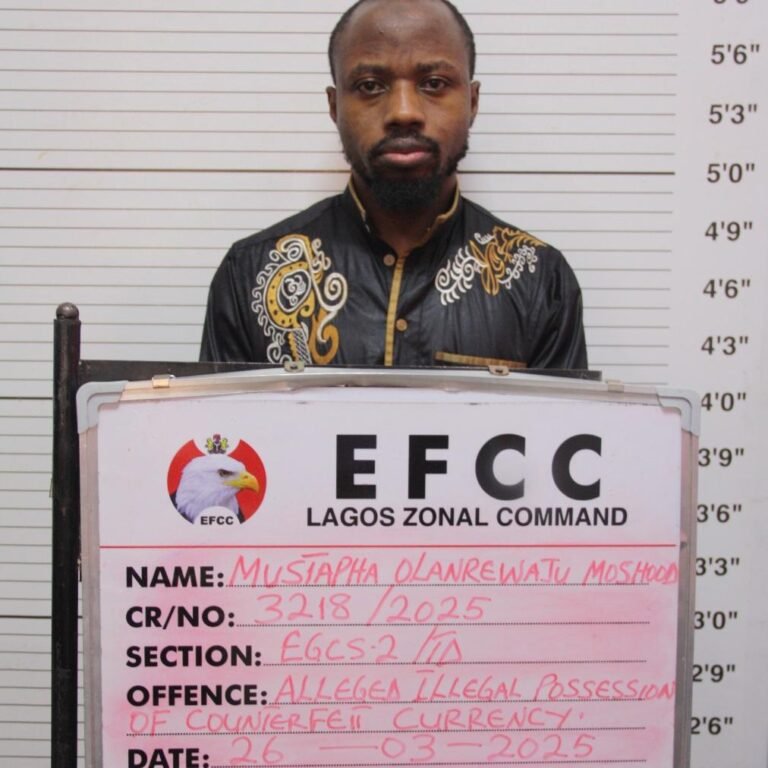 5'6"
5'3"
5'0"
4'9"
4'6"
4'3"
4'0"
3'9"
3'6"
3'3"
3'0"
2'9"
2'6"
EFCC
EFCC
LAGOS ZONAL COMMAND
NAME: MUSTAPHA OLANREWAJU MOSHOOD
CR/NO: 3218/2025
SECTION: EGCS-2/TD
OFFENCE: ALLEGED ILLEGAL POSSESSION
OF COUNTERFEIT CURRENCY.
DATE: 26-03-2025